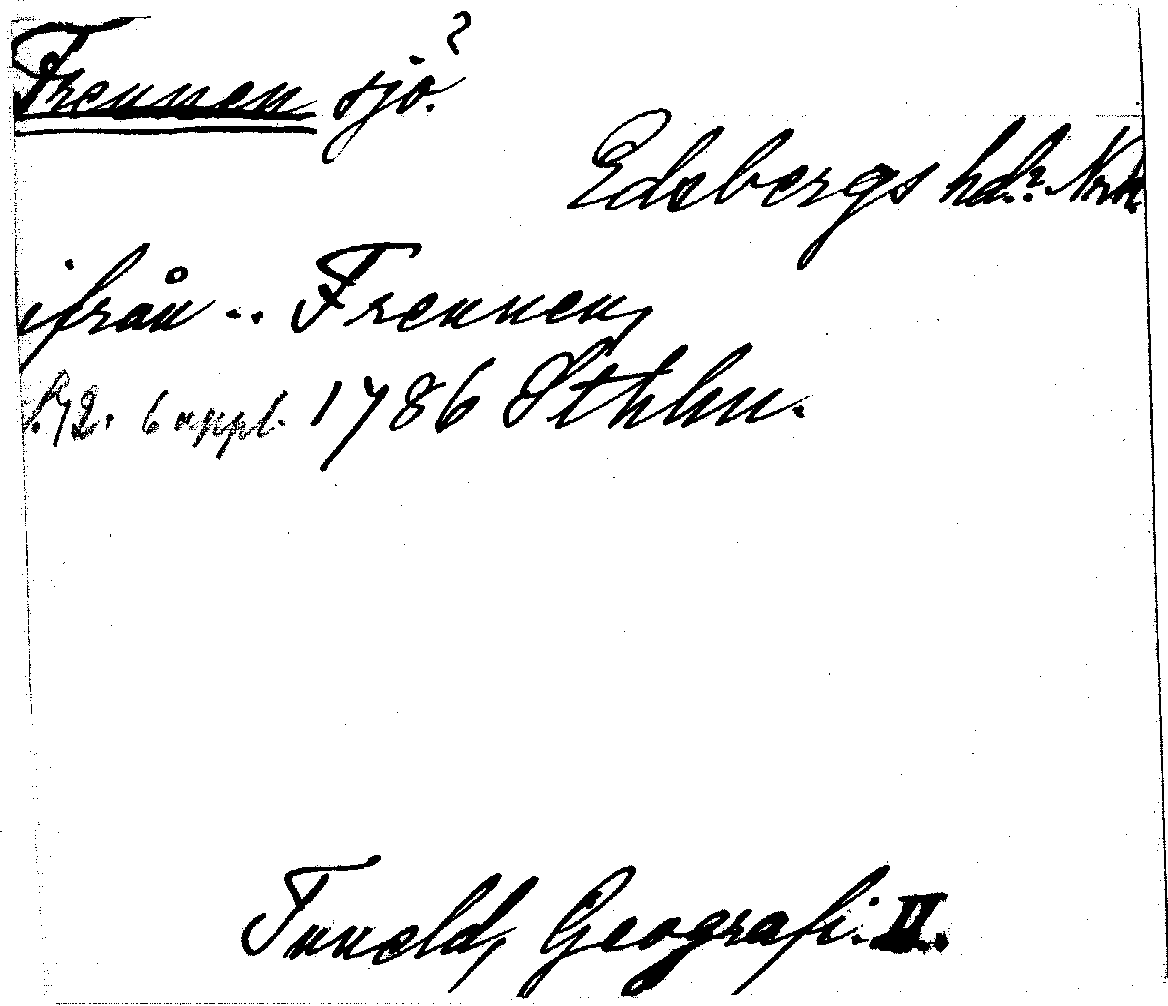 Frennen sjö?
Edsbergs hd? Nrke
ifrån .. Frennen,
S. 72. 6 uppl. 1786 Sthlm.
Tuneld, Geografi. II.